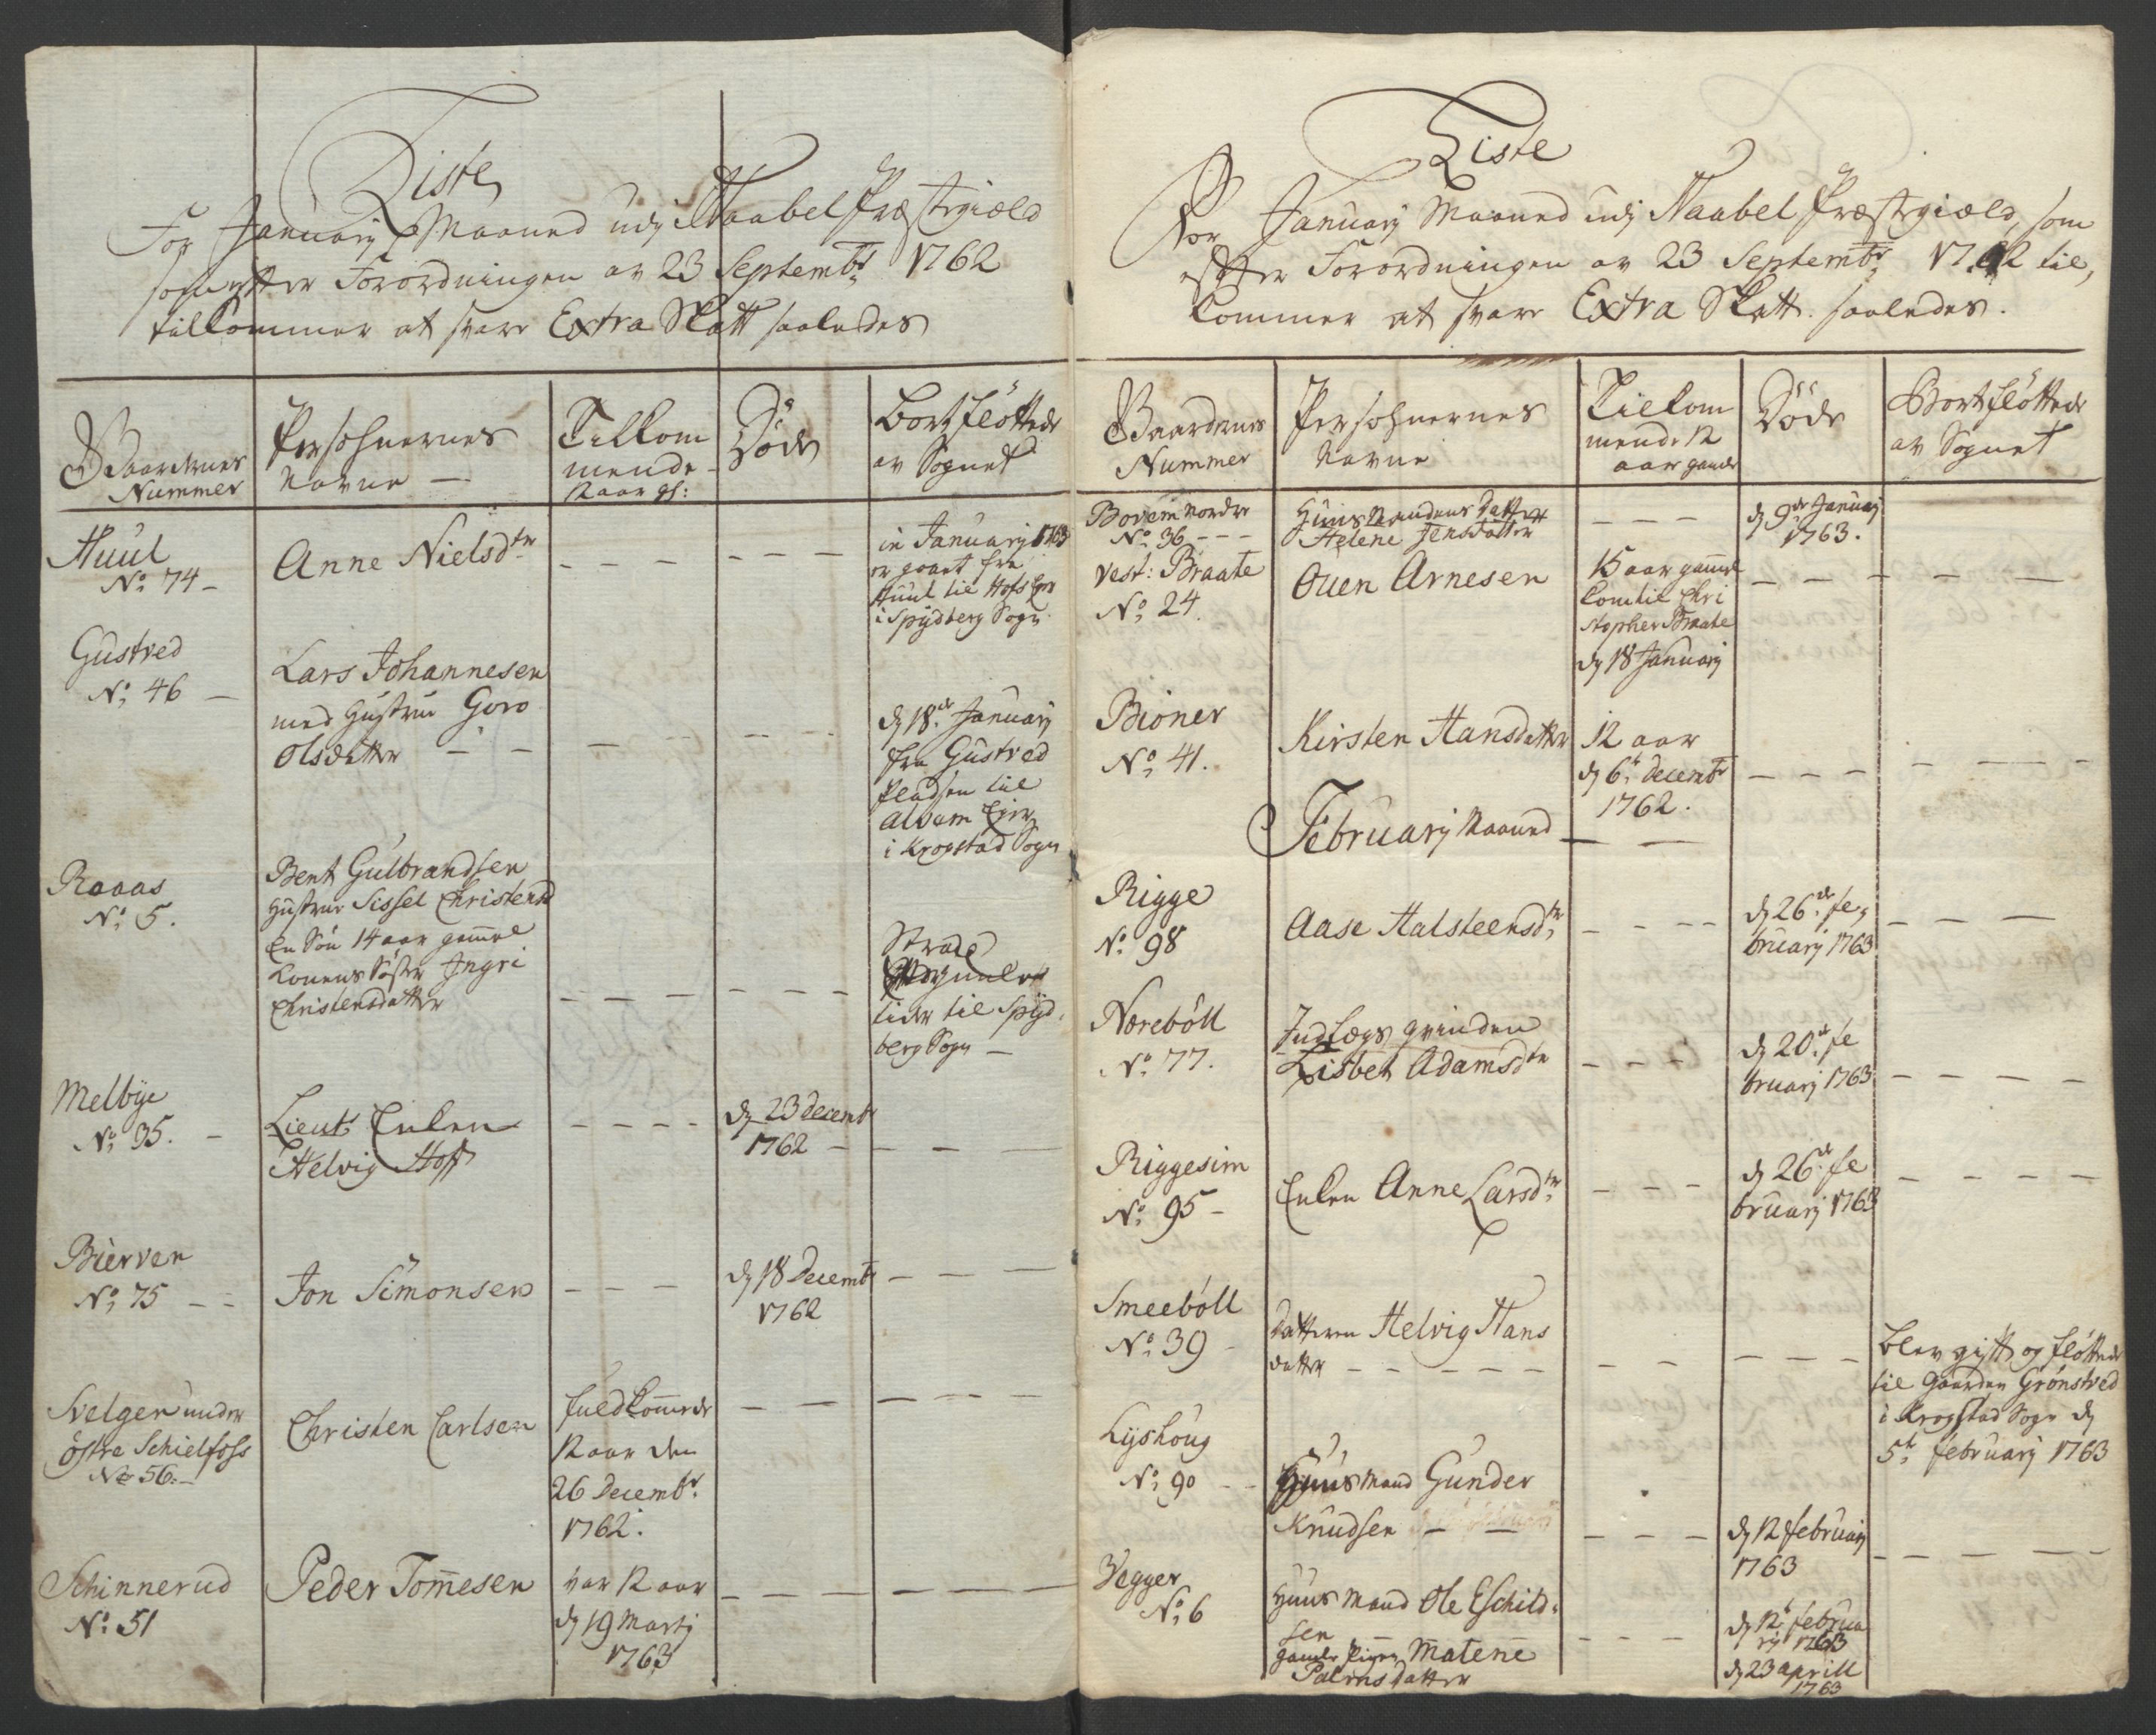 Liste
For January Maaned udj Haabel Præstegiæld
som efter Forordningen av 23 Septembr 1762
tilkommer at svare Extra Skatt saaledes
Gaardernes
Nummer
Persohnernes
Navne —
Tilkom
mende
12 aar gl:
Døde
Bortfløttede
av Sognet
Huul
No 74 —
Anne Nielsdtr
in January 1763
er gaaet fra
Huul til Hofs Eier
i Spydberg Sogn
Gustved
No 46 —
Lars Johannesen
med Hustrue Goro
Olsdatter — —
d 18de January
fra Gustved
Pladsen til
Alvam Eier
i Krogstad Sogn
Raaas
No 5.
Bent Gulbrandsen
Hustrue Sissel Christensd
En Søn 14 aar gammel
Konens Søster Ingri
Christensdatter
Strade
tider til Spyd
berg Sogn —
Melbye
No 35. —
Lieut: Enken
Helvig Hoff
d 23 Decembr
1762 —
Bierven
No 75 — —
Jon Simonsen
d 18 Decembr
1762
Svelgen under
østre Schielfoss
No 56. —
Christen Carlsen
fuldkommede
12 aar den
26 Decembr.
1762.
Schinnerud
No 51
Peder Tomesen
var 12 aar
d 19 Martj
1763
Liste
For January Maaned udj Haabel Præstegiæld, som
efter Forordningen av 23 Septembr 1762 til,
kommer at svare Extra Skatt. saaledes.
Gaardernes
Nummer
Persohnernes
Navne
Tilkom
mende 12
aar gamle
Døde
Bortfløttede
av Sognet
Bovem Nordre
No 36 — — —
Huusmandens Datter
Helene Jensdatter
d 9de January
1763.
Vest: Braate
No 24.
Ouen Arnesen
15 aar gammel
kom til Chri
stopher Braate
d 18 January
Bioner
No 41.
Kirsten Hansdatter
12 aar
d 6t Decembr
1762.
February Maaned
Rigge
No 98
Aase Halsteensdtr
d 26de fe,
bruarj 1763
Norebøll
No 77.
Indlægs qvinden
Lisbet Adamsdtr
d 20de fe
bruarj 1763
Riggesim
No 95 —
Enken Anne Larsdtr
d 26de fe
bruarj 1763
Smeebøll
No 39 —
Datteren Helvig Hans
datter
blev gift og fløttede
til Gaarden Grønstved
i Krogstad Sogn d
5te february 1763
Lyshoug
No 90 — —
Huusmand Gunder
Knudsen
d 12 february
1763
Vegger
No 6
Huusmand Ole Eschild-
sen
gamle Pigen Matene
Palmsdatter
d 12t februa
rij 1763
d 23 aprill
1763